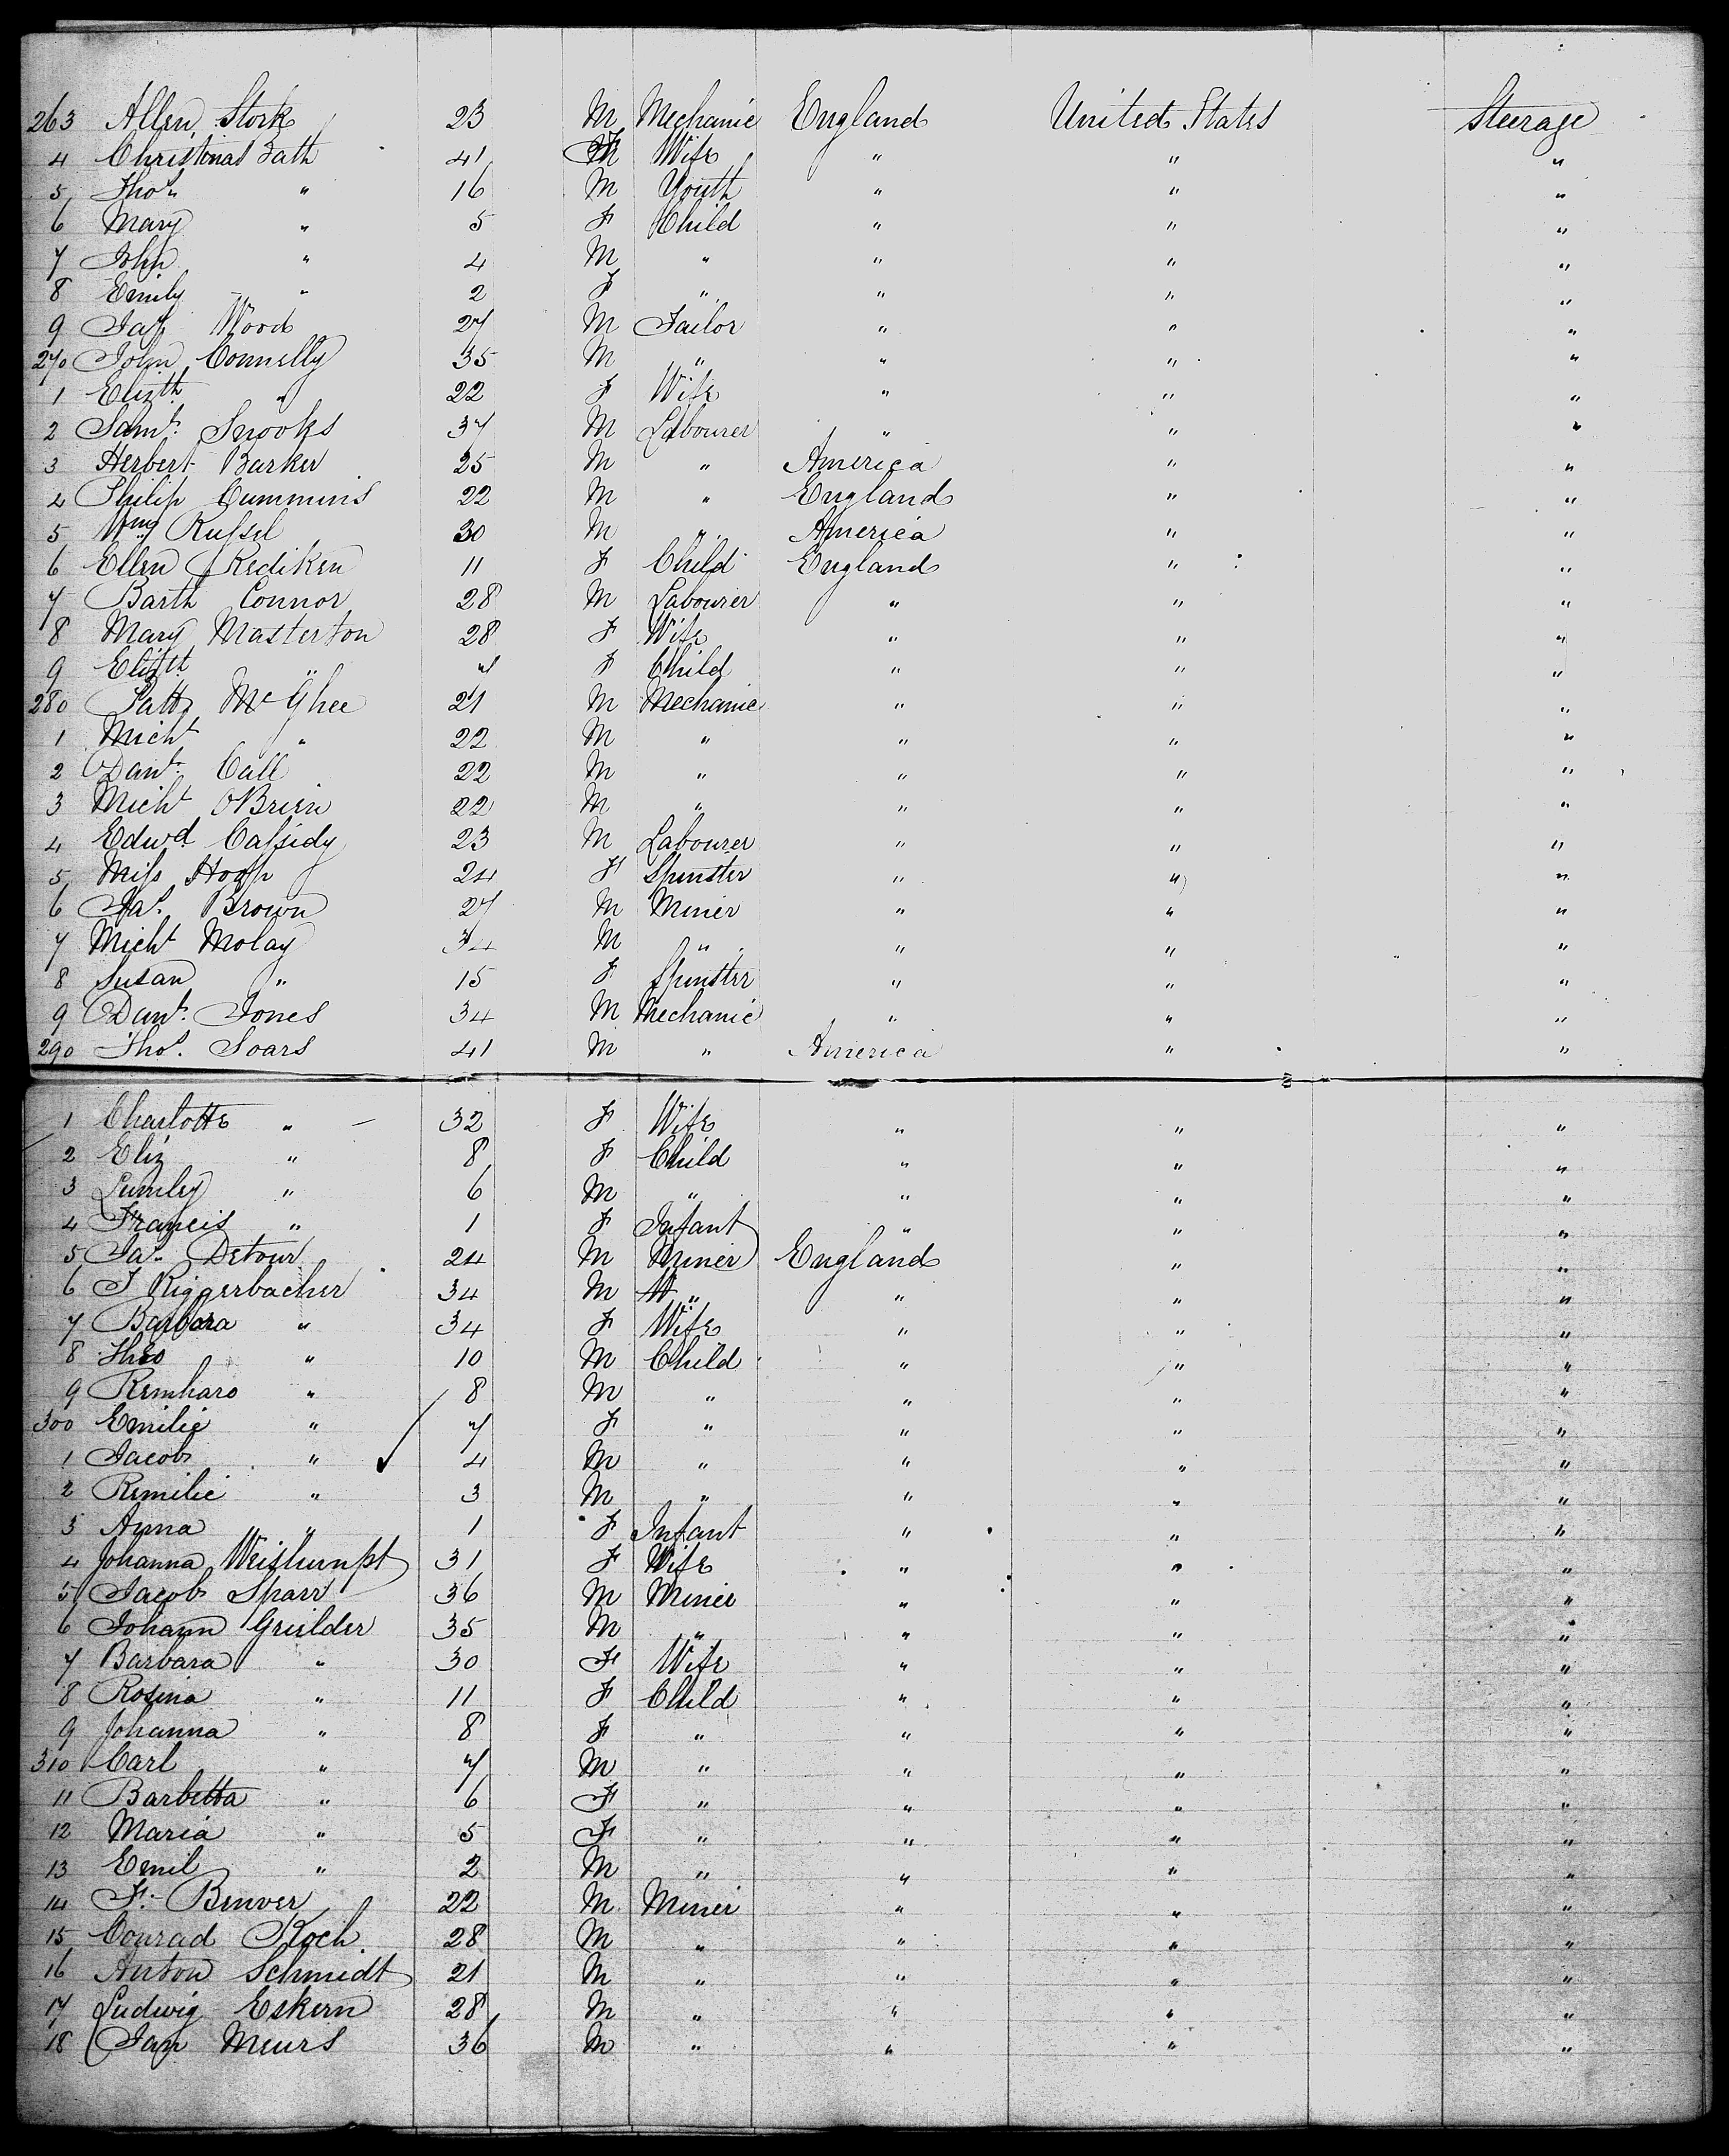 263 Allen Stork 23 M Mechanic England United States Steerage
4 Christonas Bath 41 F Wife " " "
5 Thos " 16 M Youth " " "
6 Mary " 5 F Child " " "
7 John " 4 M " " " "
8 Emily " 2 F " " " "
9 Jas Wood 27 M Tailor " " "
270 John Connelly 35 M " " " "
1 Elizth " 22 F Wife " " "
2 Saml. Snooks 37 M Labourer " " "
3 Herbert Barker 25 M " America " "
4 Philip Cummins 22 M " England " "
5 Wm Russel 30 M " America " "
6 Ellen Rediken 11 F Child England " "
7 Barth Connor 28 M Labourer " " "
8 Mary Masterton 28 F Wife " " "
9 Elizt " F Child " " "
280 Patk Mc Ghee 21 M Mechanic " " "
1 Michl " 22 M " " " "
2 Danl. Call 22 M " " " "
3 Michl OBrien 22 M " " " "
4 Edwd Cassidy 23 M Labourer " " "
5 Miss Hoop 24 F Spinster " " "
6 Jas. Brown 27 M Miner " " "
7 Michl Molay 34 M " " " "
8 Susan " 15 F Spinster " " "
9 Danl. Jones 34 M Mechanic " " "
290 Thos. Soars 41 M " America " "
1 Charlotte " 32 F Wife " " "
2 Eliz " 8 F Child " " "
3 Lumley " 6 M " " " "
4 Francis " 1 F Infant " " "
5 Jas. Detour 24 M Miner England " "
6 J Riggerbacher 34 M " " " "
7 Barbara " 34 F Wife " " "
8 Theo " 10 M Child " " "
9 Remharo " 8 M " " " "
300 Emilie " 7 F " " " "
1 Jacob " 4 M " " " "
2 Remilie " 3 M " " " "
3 Anna " 1 F Infant " " "
4 Johanna 31 F Wife " " "
5 Jacob Sparr 36 M Miner " " "
6 Johann Grielder 35 M " " " "
7 Barbara " 30 F Wife " " "
8 Rosina " 11 F Child " " "
9 Johanna " 8 F " " " "
310 Carl " 7 M " " " "
11 Barbetta " 6 F " " " "
12 Maria " 5 F " " " "
13 Emil " 2 M " " " "
14 F. Benver 22 M Miner " " "
15 Conrad Koch 28 M " " " "
16 Anton Schmidt 21 M " " " "
17 Ludwig Eskern 28 M " " " "
18 Jan Meurs 36 M " " " "